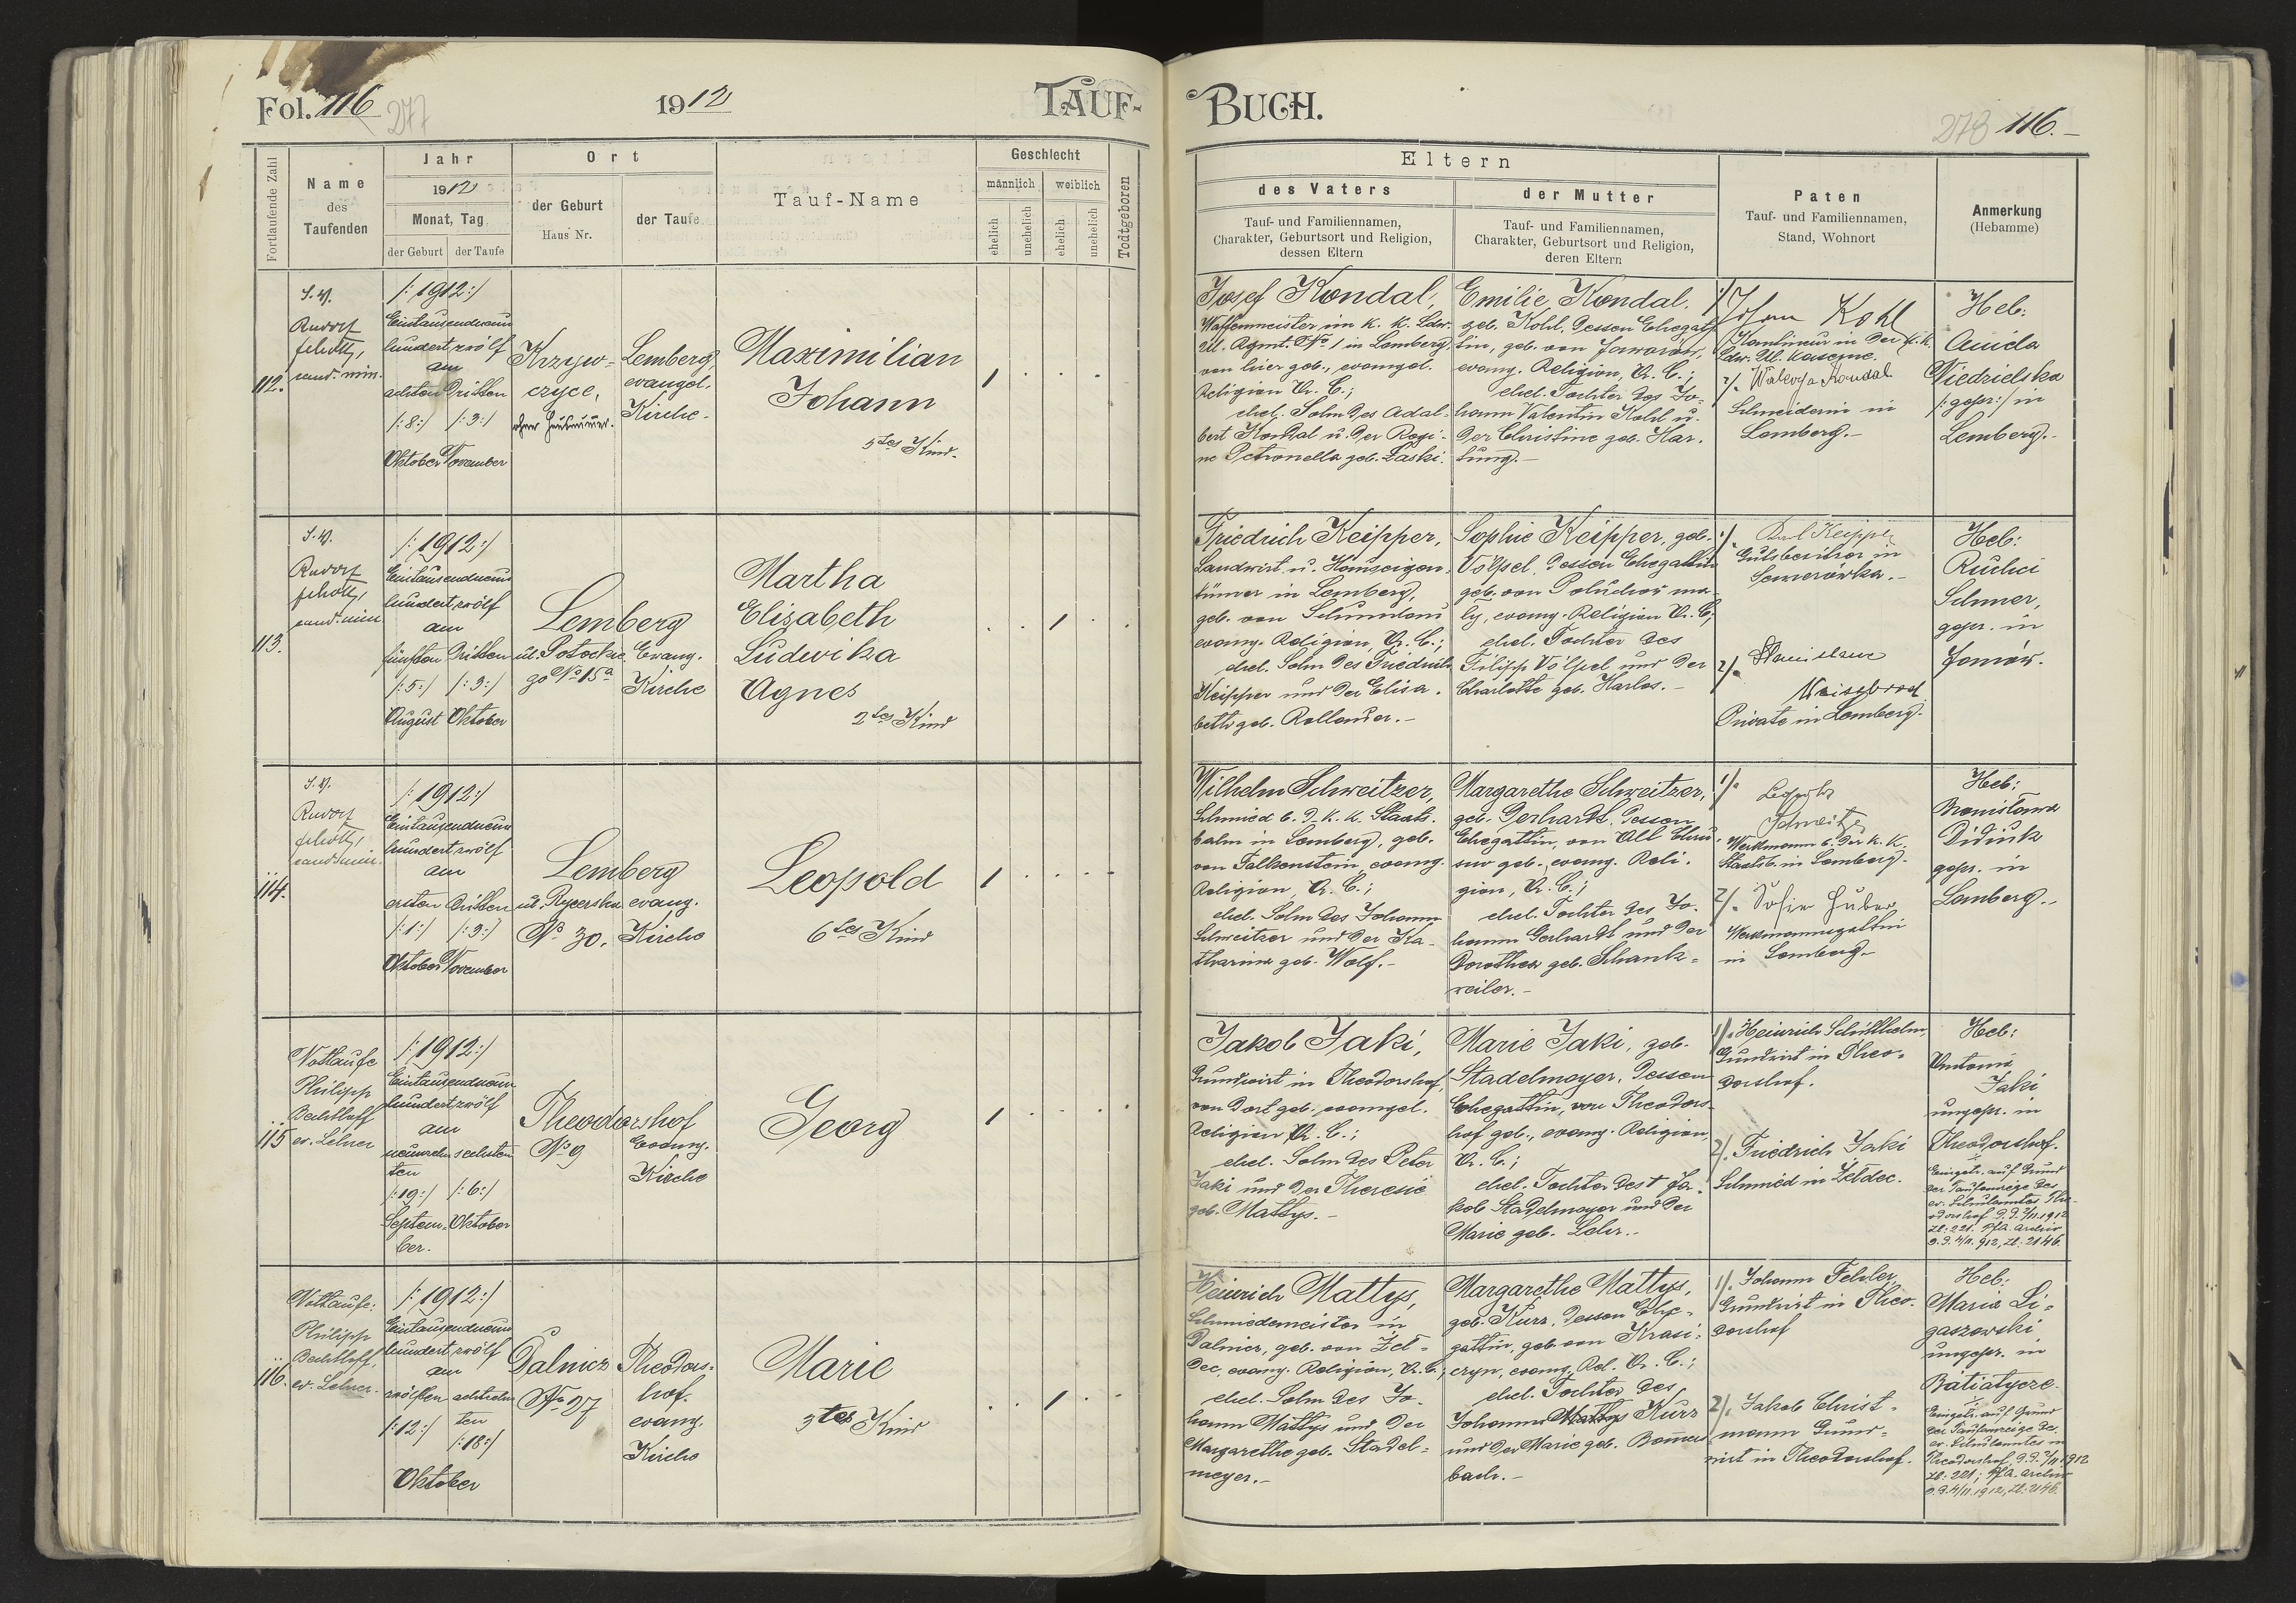 Fol. 116
277
1912
TAUF-
BUCH.
278 116.-
Fortlaufende Zahl
Name
des
Taufenden
Jahr
1912
Monat, Tag
der Geburt
der Taufe
Ort
der Geburt
Haus Nr.
der Taufe
Tauf-Name
Geschlecht
männlich
weiblich
ehelich
unehelich
ehelich
unehelich
Todtgeboren
Eltern
des Vaters
Tauf- und Familiennamen,
Charakter, Geburtsort und Religion,
dessen Eltern
der Mutter
Tauf- und Familiennamen,
Charakter, Geburtsort und Religion,
deren Eltern
Paten
Tauf- und Familiennamen,
Stand, Wohnort
Anmerkung
(Hebamme)
112.
cand. min.
/: 1912:/
Eintausendneun
hundertzwölf
am
achten Dritten
/:8:/ /:3:/
Oktober November
Krzyw-
czyce,
Lemberg,
evangel.
Kirche.
Maximilian
Johann
5tes Kind.
1
Josef Kondal,
Waffenmeister im k. k. Ldw.
Ul. Rgmt. No 1 in Lemberg,
von hier geb., evangel.
Religion A. C.;
ehel. Sohn des Adal-
bert Kondal u. der Regi-
ne Petronella geb. Laski.
Emilie Kondal.
geb. Kohl, dessen Ehegat-
tin, geb. von Jaworów,
evang. Religion, A. C.;
ehel. Tochter des Jo-
hann Valentin Kohl u.
der Christine geb. Har-
tung.-
1/. Johan Kohl
in der k. k.
Ldw. Ul. Kaserne.
2/. Kondal
Schneiderin in
Lemberg.-
Heb:
Niedzielska
/:gepr:/ in
Lemberg.-
113.
cand. min
/: 1912:/
Eintausendneun
hundertzwölf
am
fünften Dritten
/:5:/ /:3:/
August Oktober
Lemberg
ul. Potockie
go No 15a
Evang.
Kirche
Martha
Elisabeth
Ludwika
Agnes
2tes Kind
1
Friedrich Keipper,
Landwirt u. Hauseigen-
tümer in Lemberg,
geb. von
evang. Religion A. C.;
ehel. Sohn des Friedrich
Keipper und der Elisa-
beth geb. Rollauer.-
Sophie Keipper, geb.
Völpel, dessen Ehegattin
geb. von Poluchów ma-
ly, evang. Religion A. C.;
ehel. Tochter des
Filipp Völpel und der
Charlotte geb. Harlos.-
1/. Karl Keipper
Gutsbesitzer in
Sewerówka.-
2/.
Weissbrod
Private in Lemberg.
Heb:
Ruchci
gepr. in
Janów.
114.
cand. min.
/: 1912:/
Eintausendneun
hundertzwölf
am
ersten Dritten
/:1:/ /:3:/
Oktober November
Lemberg
ul. Rycerska
No 30.
evang.
Kirche
Leopold
6tes Kind
1
Wilhelm Schweitzer,
Schmied b. d. k. k. Staats-
bahn in Lemberg, geb.
von Falkenstein, evang.
Religion, A. C.;
ehel. Sohn des Johann
Schweitzer und der Ka-
tharina geb. Wolf.-
Margarethe Schweitzer,
geb. Gerhardt, dessen
Ehegattin, von Alt Chru-
sno geb., evang. Reli-
gion, A. C.;
ehel. Tochter des Jo-
hann Gerhardt und der
Dorothea geb. Schank-
weiler.-
1/. Leopold
Schweitzer
Werkmann b. der k. k.
Staatsb. in Lemberg.
2/. Sofie Huber
Werkmannsgattin
in Lemberg.-
Heb:
Bronisława
Didiuk
gepr. in
Lemberg.-
115
Nottaufe
Philipp
Bechtloff
ev. Lehrer
/: 1912:/
Eintausendneun
hundertzwölf
am
neunzehn sechsten
ten
/:19:/ /:6:/
Septem- Oktober
ber.
Theodorshof
No 9
Evang.
Kirche
Georg
1
Jakob Jaki,
Grundwirt in Theodorshof,
von dort geb., evangel.
Religion A. C.;
ehel. Sohn des Peter
Jaki und der Theresie
geb. Mattys.-
Marie Jaki, geb.
Stadelmayer, dessen
Ehegattin, von Theodors-
hof geb., evang. Religion,
A. C.;
ehel. Tochter des † Ja-
kob Stadelmayer und der
Marie geb. Lehr.-
1/. Heinrich
Grundwirt in Theo-
dorshof.
2/. Friedrich Jaki
Schmied in Żeldec.
Heb:
Antonia
Jaki
ungepr. in
Theodorshof.
Eingetr. auf Grund
der Taufanzeige des
ev. Schulamtes The-
odorshof d. d. 2/11.1912
Zl: 221. Pfa. Archiv
d. d. 4/11. 912, Zl: 2146.
116.
Nottaufe:
Philipp
Bechtloff,
ev. Lehrer.
/: 1912:/
Eintausendneun
hundertzwölf
am
zwölften achtzehn
/:12:/ ten
/:18:/
Oktober
Dalnicz
No 97
Theodors-
hof.
evang.
Kirche
Marie
3tes Kind
1
Heinrich Mattys,
Schmiedemeister in
Dalnicz, geb. von Żel-
dec, evang. Religion, A. C.;
ehel. Sohn des Jo-
hann Mattys und der
Margarethe geb. Stadel-
meyer.-
Margarethe Mattys,
geb. Kurz, dessen Ehe-
gattin, geb. von Krasi-
czyn, evang. Rel. A. C.;
ehel. Tochter des
Johann Mattys Kurz
und der Marie geb.
bach.-
1/. Johann Fehler,
Grundwirt in Theo-
dorshof
2/. Jakob Christ-
mann Grund-
wirt in Theodorshof.
Heb:
Maria Li-
gaszewski
ungepr. in
Batiatycze
Eingetr. auf Grund
der Taufanzeige des
ev. Schulamtes in
Theodorshof d. d. 2/11 1912
Zl: 221; Pfa. Archiv
d. d. 4/11. 1912, Zl: 2146.